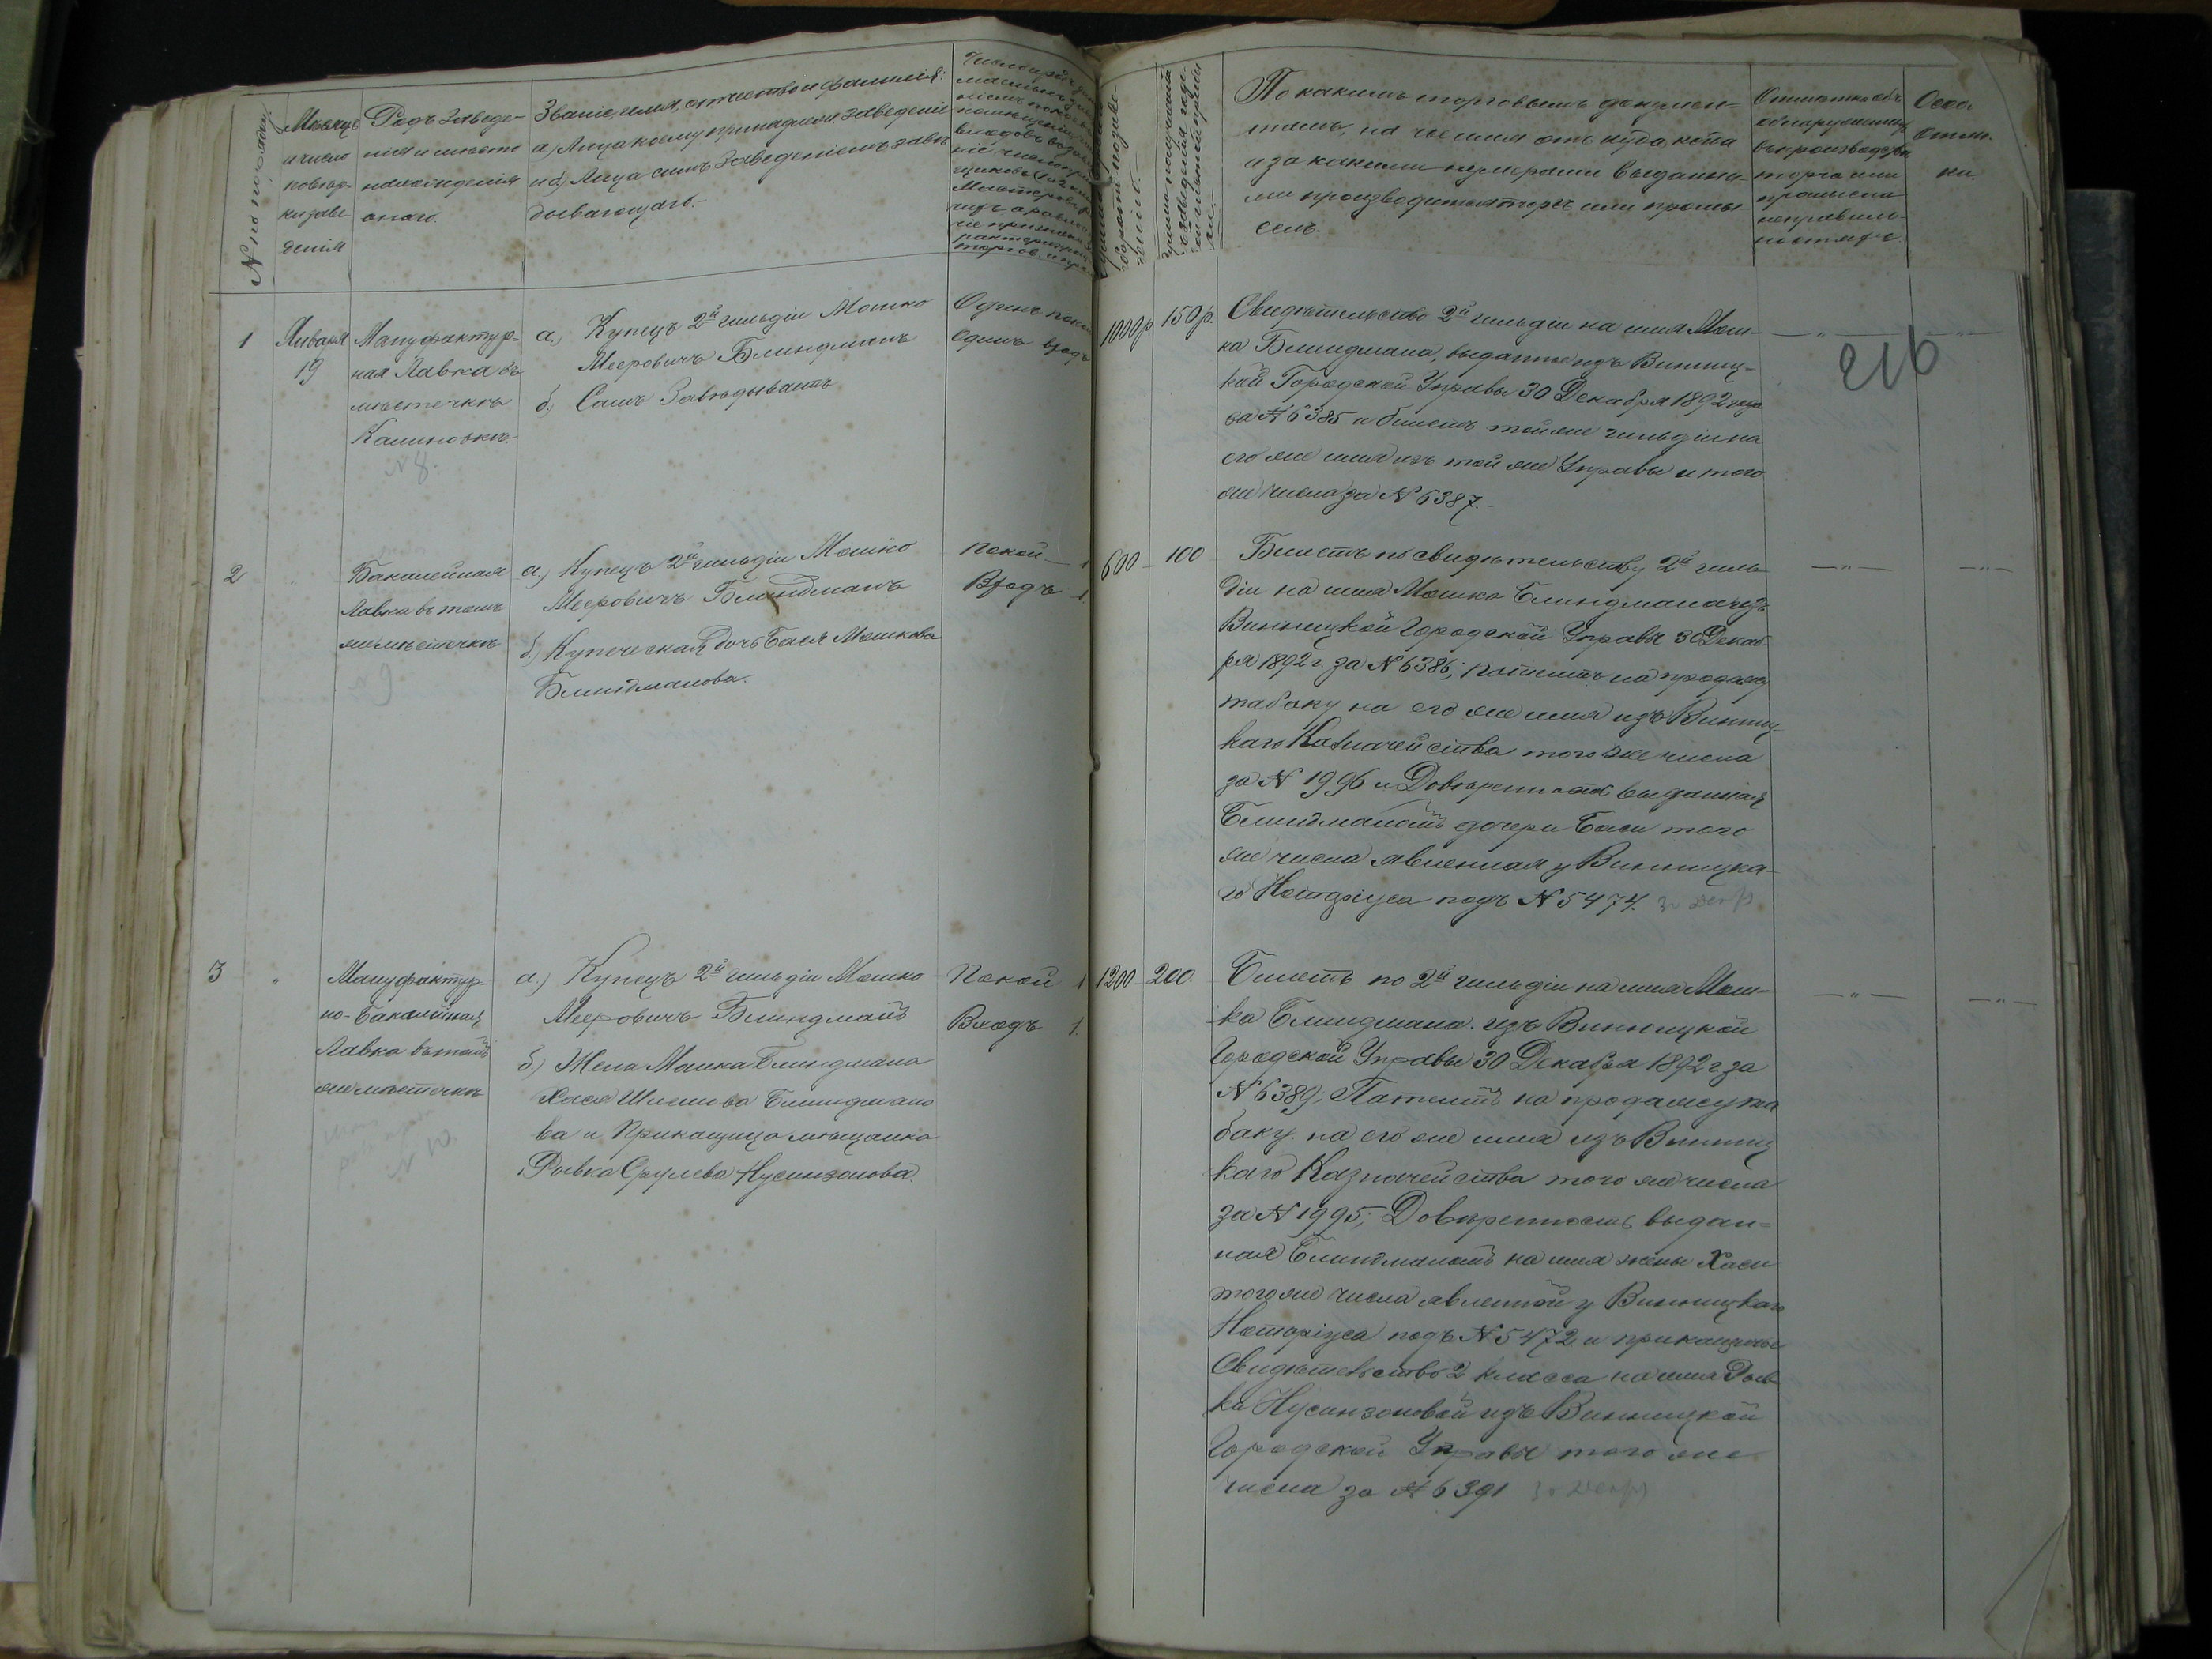 № по порядку
Мѣсяцъ
и число
повѣр-
ки заве-
денія
Родъ заведе-
нія и мѣсто
нахожденія
онаго.
Званіе, имя, отчество и фамилія:
а) Лица коему принадлеж. заведеніе
и б) Лица симъ заведеніемъ завѣ-
дывающаго.
По какимъ торговымъ докумен-
тамъ, на чье имя отъ куда, когда
и за какими нумерами выданны-
ми производится торгъ или промы-
селъ.
Отмѣтка объ
обнаруженныхъ
въ производствѣ
торга или
промысла
неправиль-
ностяхъ.
Особ.
отмѣт-
ки.
216
1
Января
19
Мануфактур-
ная Лавка въ
мѣстечкѣ
Калиновкѣ
N 8.
а.) Купецъ 2й гильдіи Мошко
Мееровичъ Блиндманъ
б.) Самъ Завѣдываетъ
Одинъ покой
Одинъ входъ
1000 р
150 р.
Свидѣтельство 2й гильдіи на имя Мош-
ка Блиндмана, выданное изъ Винниц-
кой Городской Управы 30 Декабря 1892 года
за № 6385 и билетъ той же гильдіи на
его же имя изъ той же Управы и того
же числа за № 6387.
2
Бакалейная
Лавка въ томъ
же мѣстечкѣ
N 9
а.) Купецъ 2й гильдіи Мошко
Мееровичъ Блиндманъ
б.) Купеческая дочь Бася Мошкова
Блиндманова.
Покой — 1
Входъ — 1.
600
100
Билетъ по свидѣтельству 2й гиль-
діи на имя Мошко Блиндмана изъ
Винницкой Городской Управы 30 Декаб-
ря 1892 г. за № 6386; патентъ на продажу
табаку на его же имя изъ Винниц-
каго Казначейства того же числа
за № 1996 и Довѣренность выданная
Блиндманомъ дочери Баси того
же числа явленная у Винницка-
го Нотаріуса подъ № 5474. 30 декр
3
Мануфактур-
но-Бакалейная
Лавка въ томъ
же мѣстечкѣ
N 10.
а.) Купецъ 2й гильдіи Мошко
Мееровичъ Блиндманъ
б.) Жена Мошка Блиндмана
Хася Шлемова Блиндмано-
ва и Прикащица мѣщанка
Ривка Срулева Нусинзонова.
Покой 1
Входъ 1.
1200
200.
Билетъ по 2й гильдіи на имя Мош-
ка Блиндмана. изъ Винницкой
Городской Управы 30 Декабря 1892 г за
№ 6389; Патентъ на продажу та
баку. на его же имя изъ Винниц
каго Казначейства того же числа
за № 1995; Довѣренность выдан-
ная Блиндманомъ на имя жены Хаси
того же числа явленной у Винницкаго
Нотаріуса подъ № 5472 и прикащичье
Свидѣтельство 2 класса на имя Рив-
ки Нусинзоновой изъ Винницкой
Городской Управы того же
числа за № 6391 30 декр